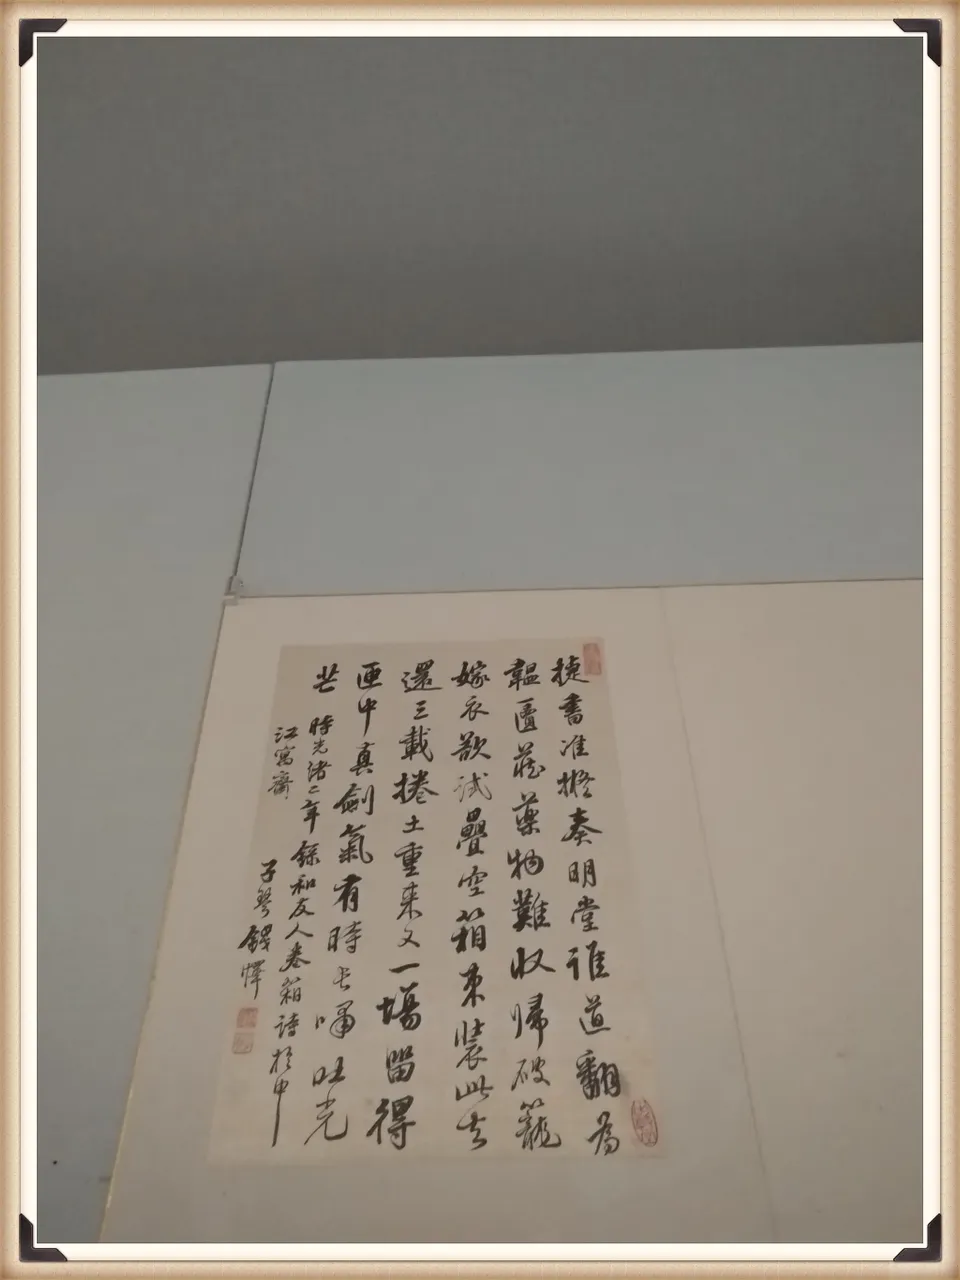 捷書准擬奏明堂誰道翻為
韞匵藏藥物難收歸破籠
嫁衣欲試疊空箱束裝此去
還三載捲土重来又一場留得
匣中真劍氣有時長嘯吐光
芒
時光緒二年録和友人卷箱詩於中
江寓齋
子琴